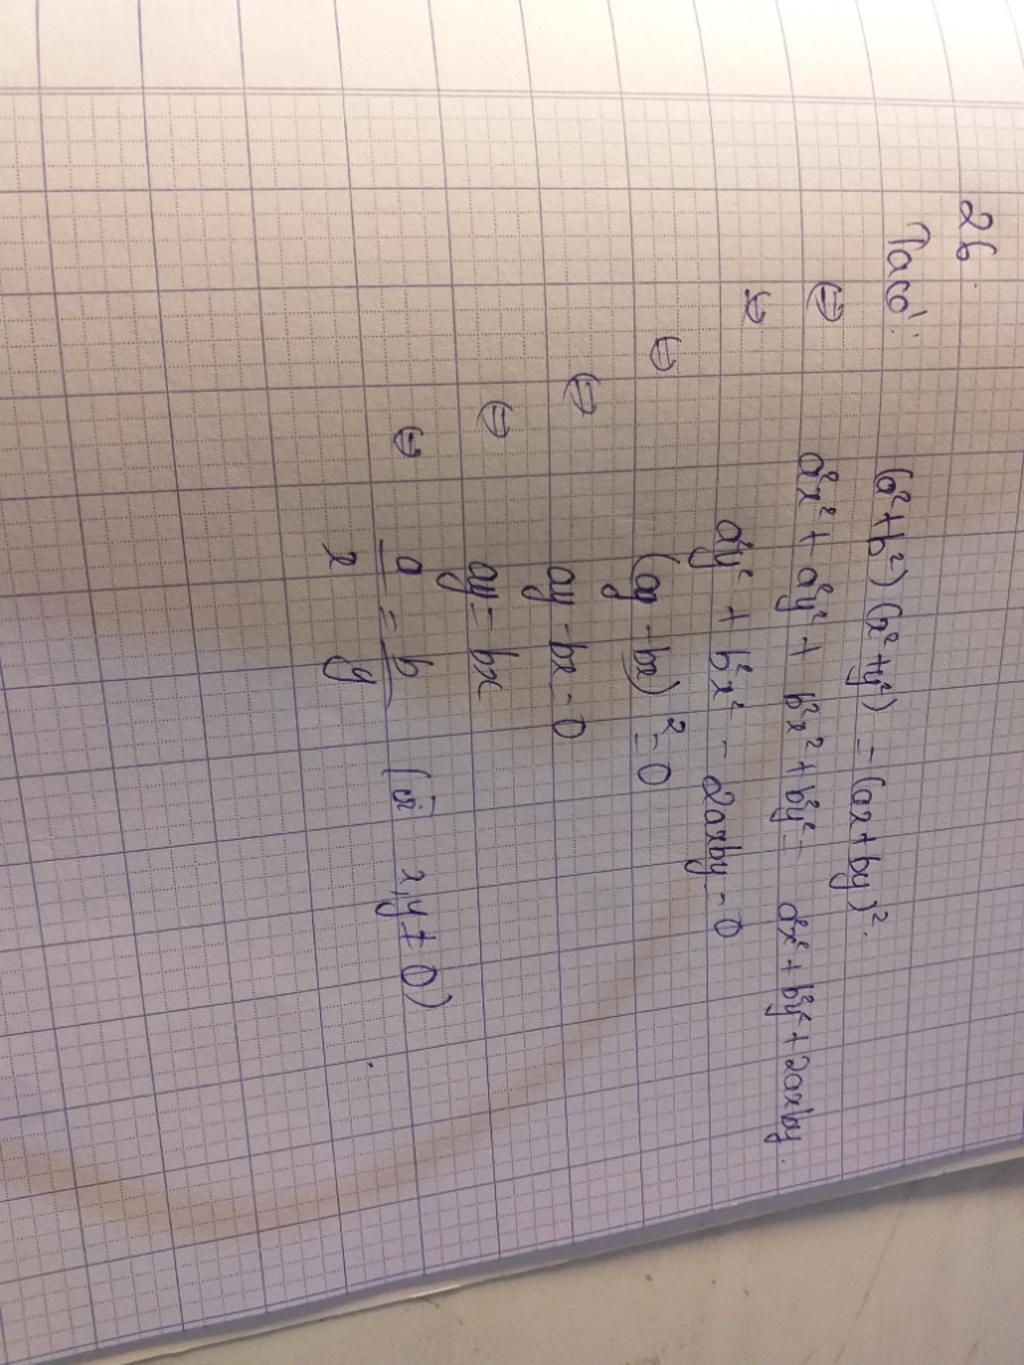 26.
Ta có:
(a²+b²)(x²+y²) = (ax+by)².
⇔ a²x² + a²y² + b²x² + b²y² = a²x² + b²y² + 2axby.
⇔ a²y² + b²x² - 2axby = 0
⇔ (ay - bx)² = 0
⇔ ay - bx = 0
⇔ ay = bx
⇔ a/x = b/y (vì x,y ≠ 0)